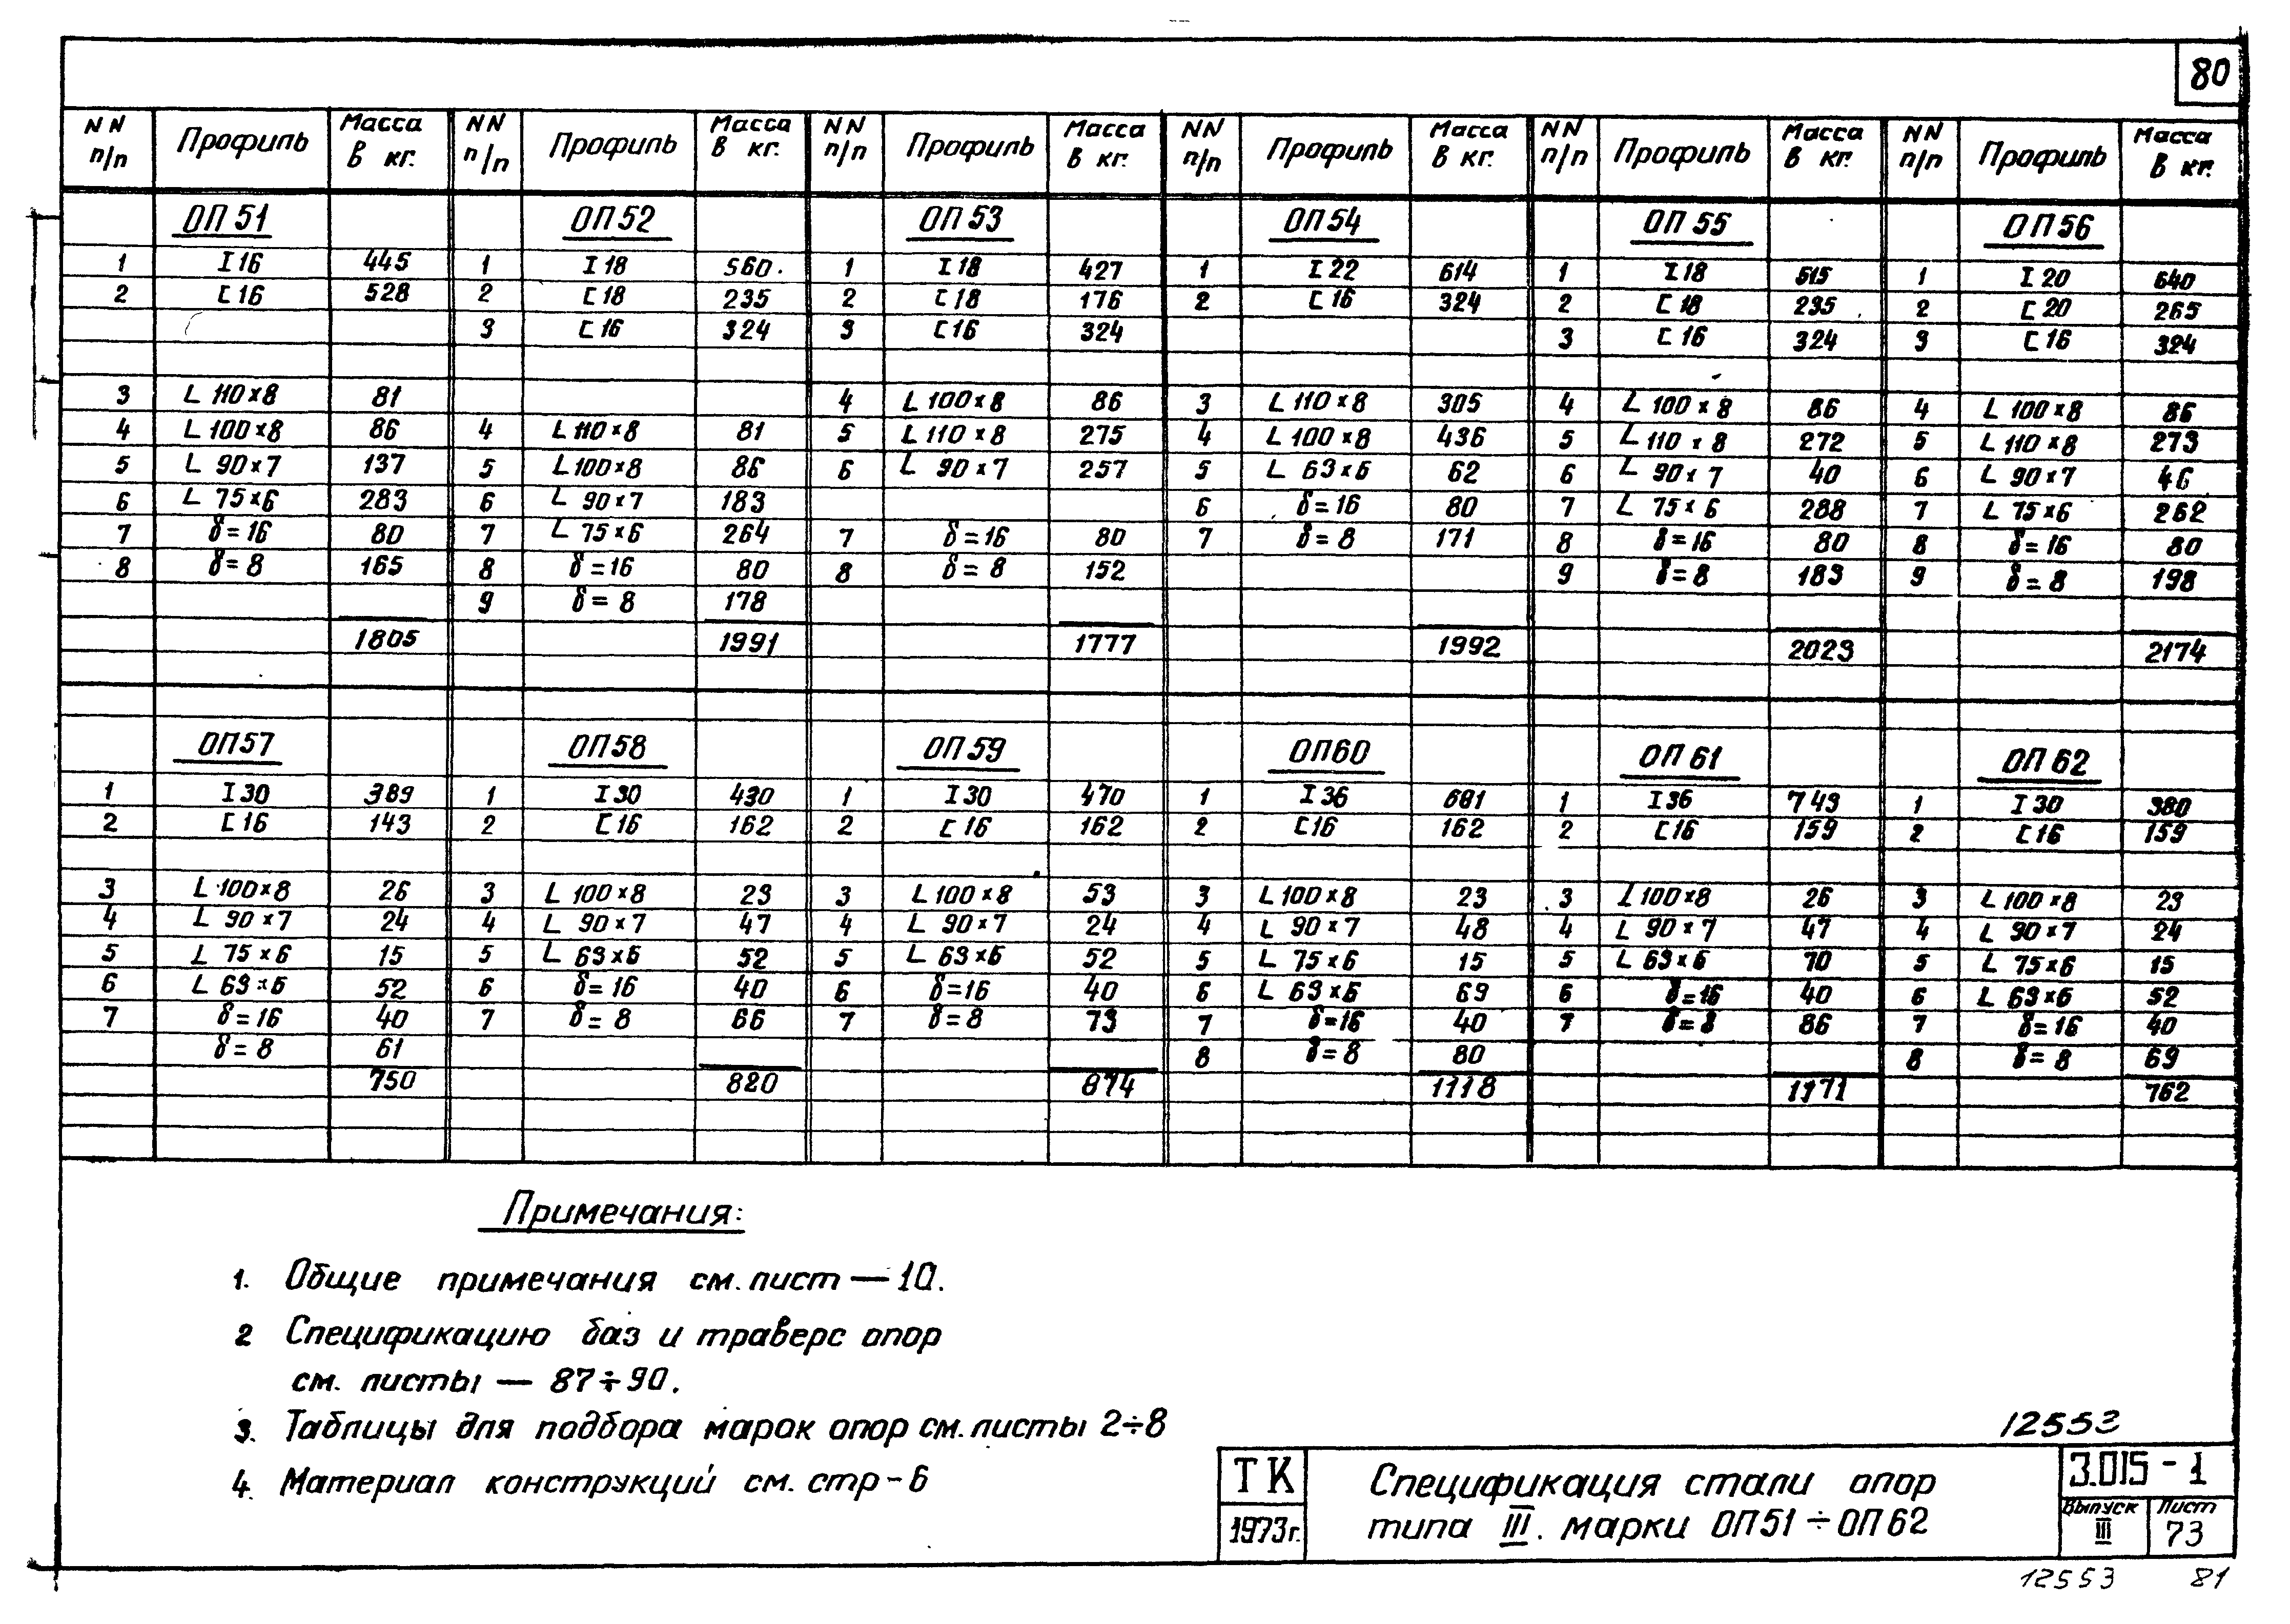 80
NN п/п Профиль Масса в кг. NN п/п Профиль Масса в кг. NN п/п Профиль Масса в кг. NN п/п Профиль Масса в кг. NN п/п Профиль Масса в кг. NN п/п Профиль Масса в кг.
ОП 51 ОП 52 ОП 53 ОП 54 ОП 55 ОП 56
1 I 16 445 1 I 18 560 1 I 18 427 1 I 22 614 1 I 18 615 1 I 20 640
2 [ 16 528 2 [ 18 235 2 [ 18 176 2 [ 16 324 2 [ 18 235 2 [ 20 265
3 [ 16 324 3 [ 16 324 3 [ 16 324 3 [ 16 324
3 L 110×8 81 4 L 100×8 86 3 L 110×8 305 4 L 100×8 86 4 L 100×8 86
4 L 100×8 86 4 L 110×8 81 5 L 110×8 275 4 L 100×8 436 5 L 110×8 272 5 L 110×8 273
5 L 90×7 137 5 L 100×8 86 6 L 90×7 257 5 L 63×6 62 6 L 90×7 40 6 L 90×7 46
6 L 75×6 283 6 L 90×7 183 6 δ=16 80 7 L 75×6 288 7 L 75×6 262
7 δ=16 80 7 L 75×6 264 7 δ=16 80 7 δ=8 171 8 δ=16 80 8 δ=16 80
8 δ=8 165 8 δ=16 80 8 δ=8 152 9 δ=8 183 9 δ=8 198
9 δ=8 178
1805 1991 1777 1992 2023 2174
ОП 57 ОП 58 ОП 59 ОП 60 ОП 61 ОП 62
1 I 30 389 1 I 30 430 1 I 30 470 1 I 36 681 1 I 36 743 1 I 30 380
2 [ 16 143 2 [ 16 162 2 [ 16 162 2 [ 16 162 2 [ 16 159 2 [ 16 159
3 L 100×8 26 3 L 100×8 23 3 L 100×8 53 3 L 100×8 23 3 L 100×8 26 3 L 100×8 23
4 L 90×7 24 4 L 90×7 47 4 L 90×7 24 4 L 90×7 48 4 L 90×7 47 4 L 90×7 24
5 L 75×6 15 5 L 63×6 52 5 L 63×6 52 5 L 75×6 15 5 L 63×6 70 5 L 75×6 15
6 L 63×6 52 6 δ=16 40 6 δ=16 40 6 L 63×6 69 6 δ=16 40 6 L 63×6 52
7 δ=16 40 7 δ=8 66 7 δ=8 73 7 δ=16 40 7 δ=8 86 7 δ=16 40
δ=8 61 8 δ=8 80 8 δ=8 69
750 820 874 1118 1171 762
Примечания:
1. Общие примечания см. лист — 10.
2 Спецификацию баз и траверс опор
см. листы — 87÷90.
3. Таблицы для подбора марок опор см. листы 2÷8
4. Материал конструкций см. стр - 6
12553
ТК
1973г.
Спецификация стали опор
типа III. марки ОП51÷ОП62
3.015-1
Выпуск III
Лист 73
12553 81